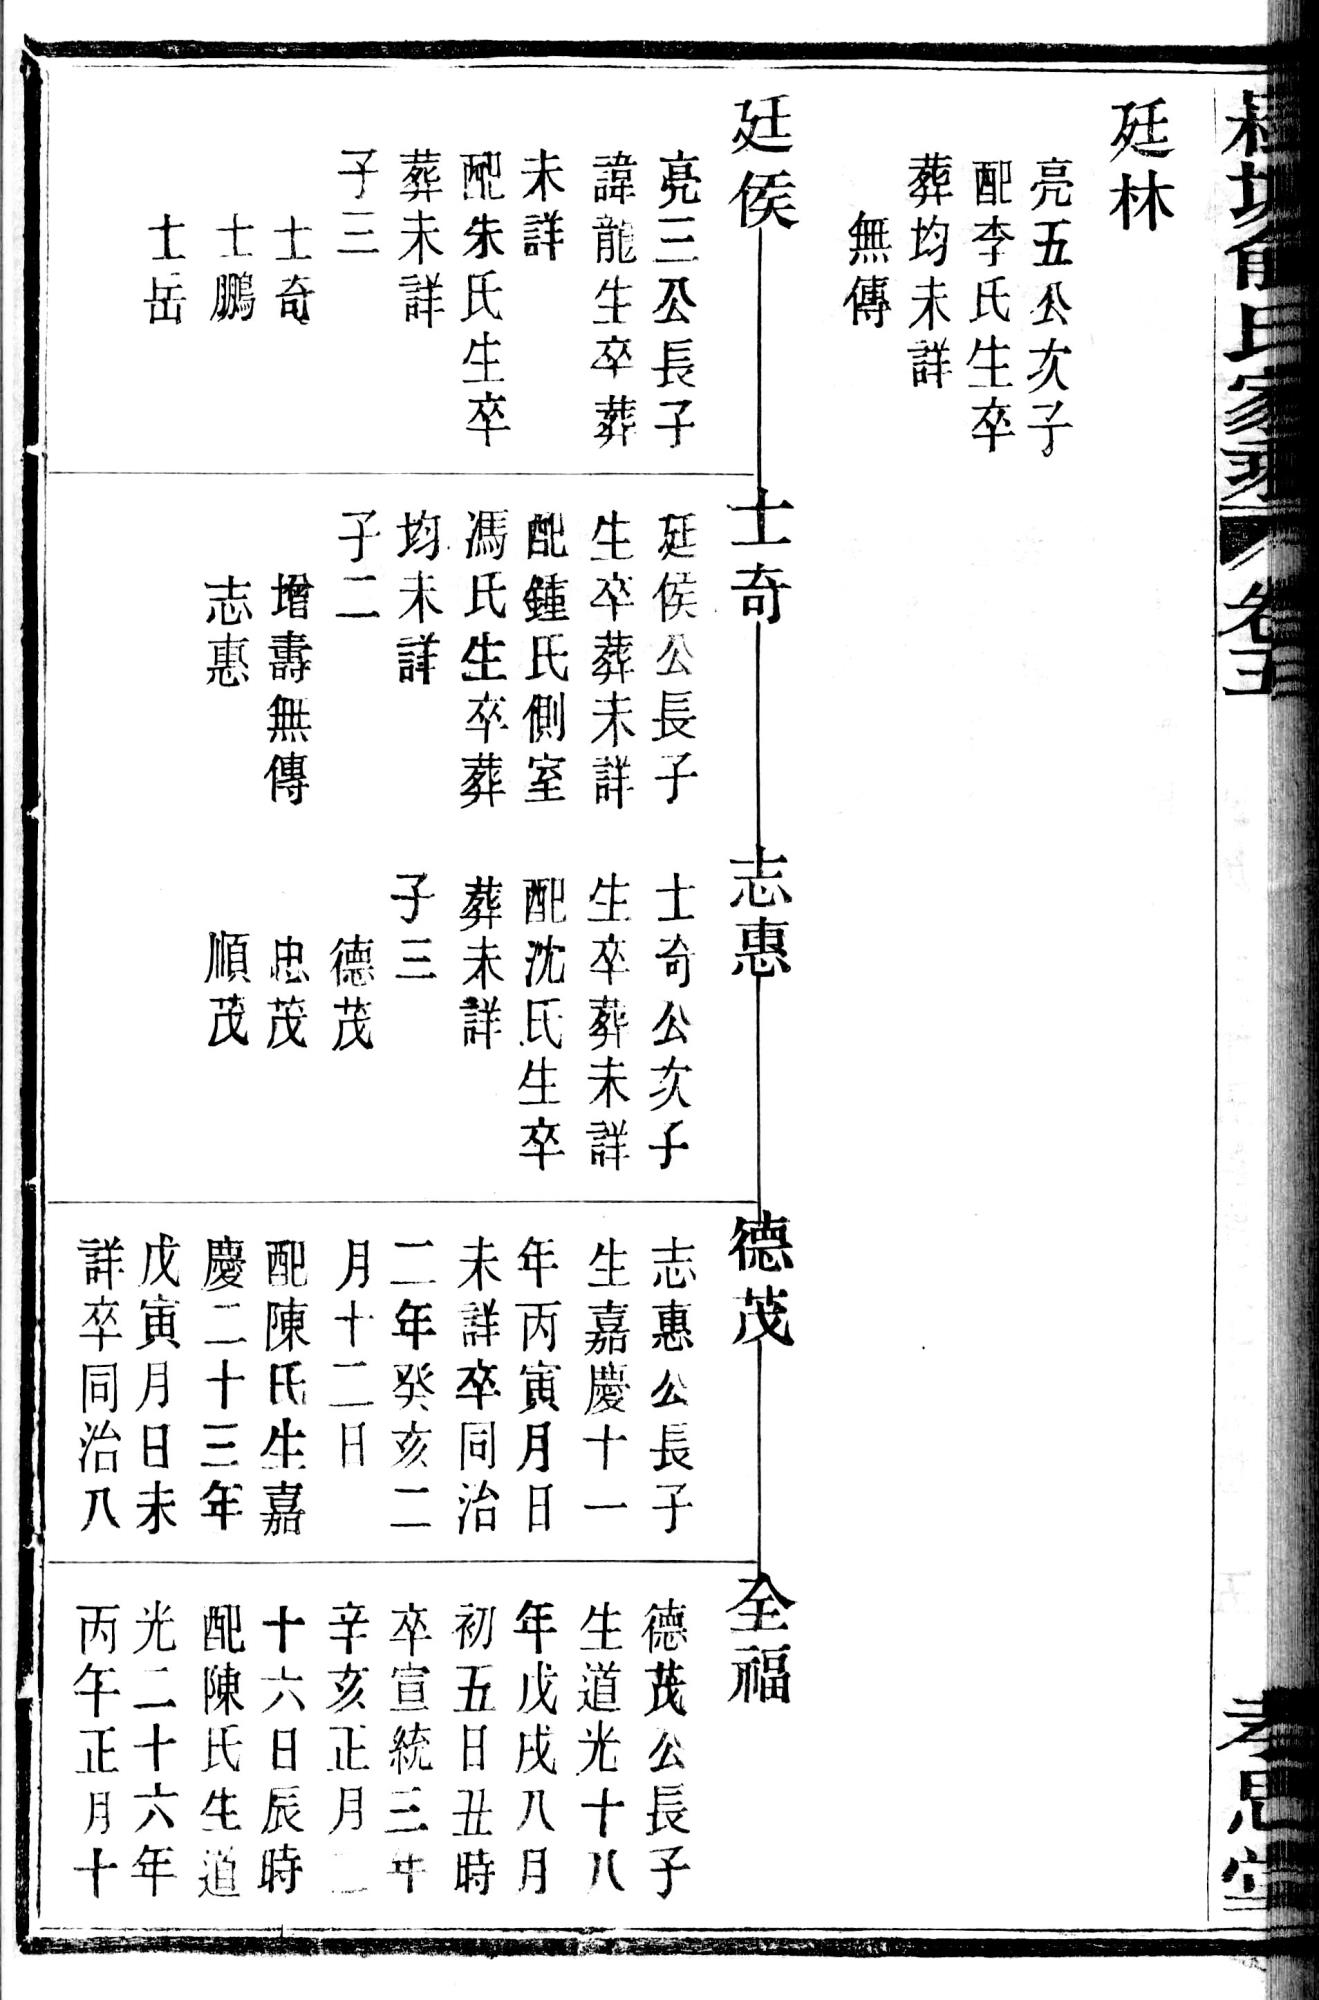 氏家
卷五
孝思堂
廷林
亮五公次子
配李氏生卒
葬均未詳
無傳
廷侯
亮三公長子
諱龍生卒葬
未詳
配朱氏生卒
葬未詳
子三
士奇
士鵬
士岳
士奇
廷侯公長子
生卒葬未詳
配鍾氏側室
馮氏生卒葬
均未詳
子二
增壽無傳
志惠
志惠
士奇公次子
生卒葬未詳
配沈氏生卒
葬未詳
子三
德茂
忠茂
順茂
德茂
志惠公長子
生嘉慶十一
年丙寅月日
未詳卒同治
二年癸亥二
月十二日
配陳氏生嘉
慶二十三年
戊寅月日未
詳卒同治八
全福
德茂公長子
生道光十八
年戊戌八月
初五日丑時
卒宣統三年
辛亥正月二
十六日辰時
配陳氏生道
光二十六年
丙午正月十